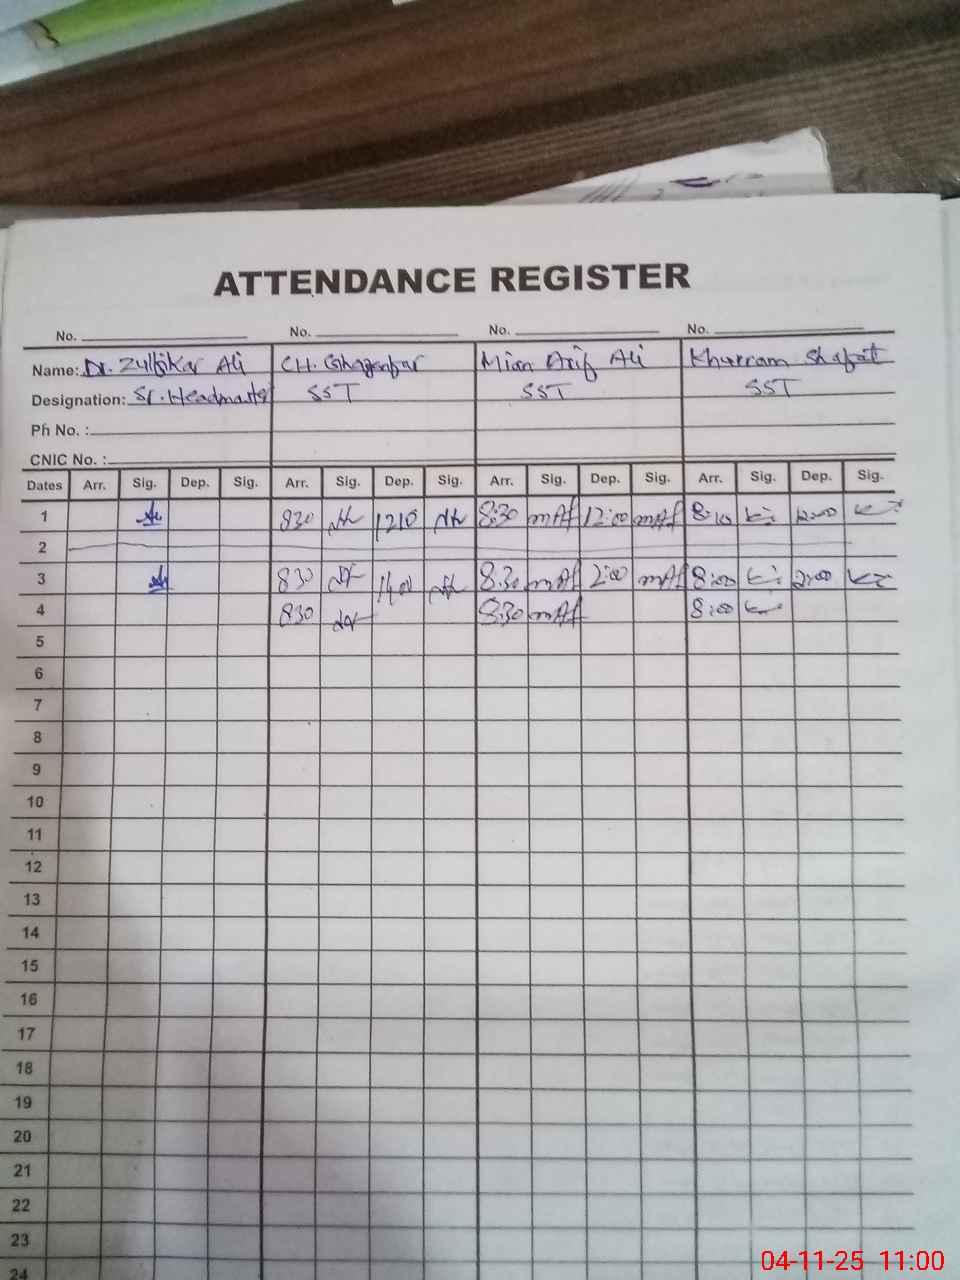 ATTENDANCE REGISTER
No. No. No. No.
Name: Dr. Zulfikar Ali CH. Ghazanfar Mian Arif Ali Khurram Shafat
Designation: Sr. Headmaster SST SST SST
Ph No. :
CNIC No. :
Dates Arr. Sig. Dep. Sig. Arr. Sig. Dep. Sig. Arr. Sig. Dep. Sig. Arr. Sig. Dep. Sig.
1 830 1210 8:30 mAf 12:00 mAf 8:10 12:00
2
3 830 1400 8:30 mAf 2:00 mAf 8:00 2:00
4 830 8:30 mAf 8:00
5
6
7
8
9
10
11
12
13
14
15
16
17
18
19
20
21
22
23
24
04-11-25 11:00